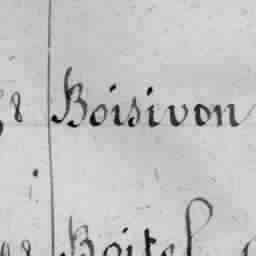 8 Boisivon
98 Boitel